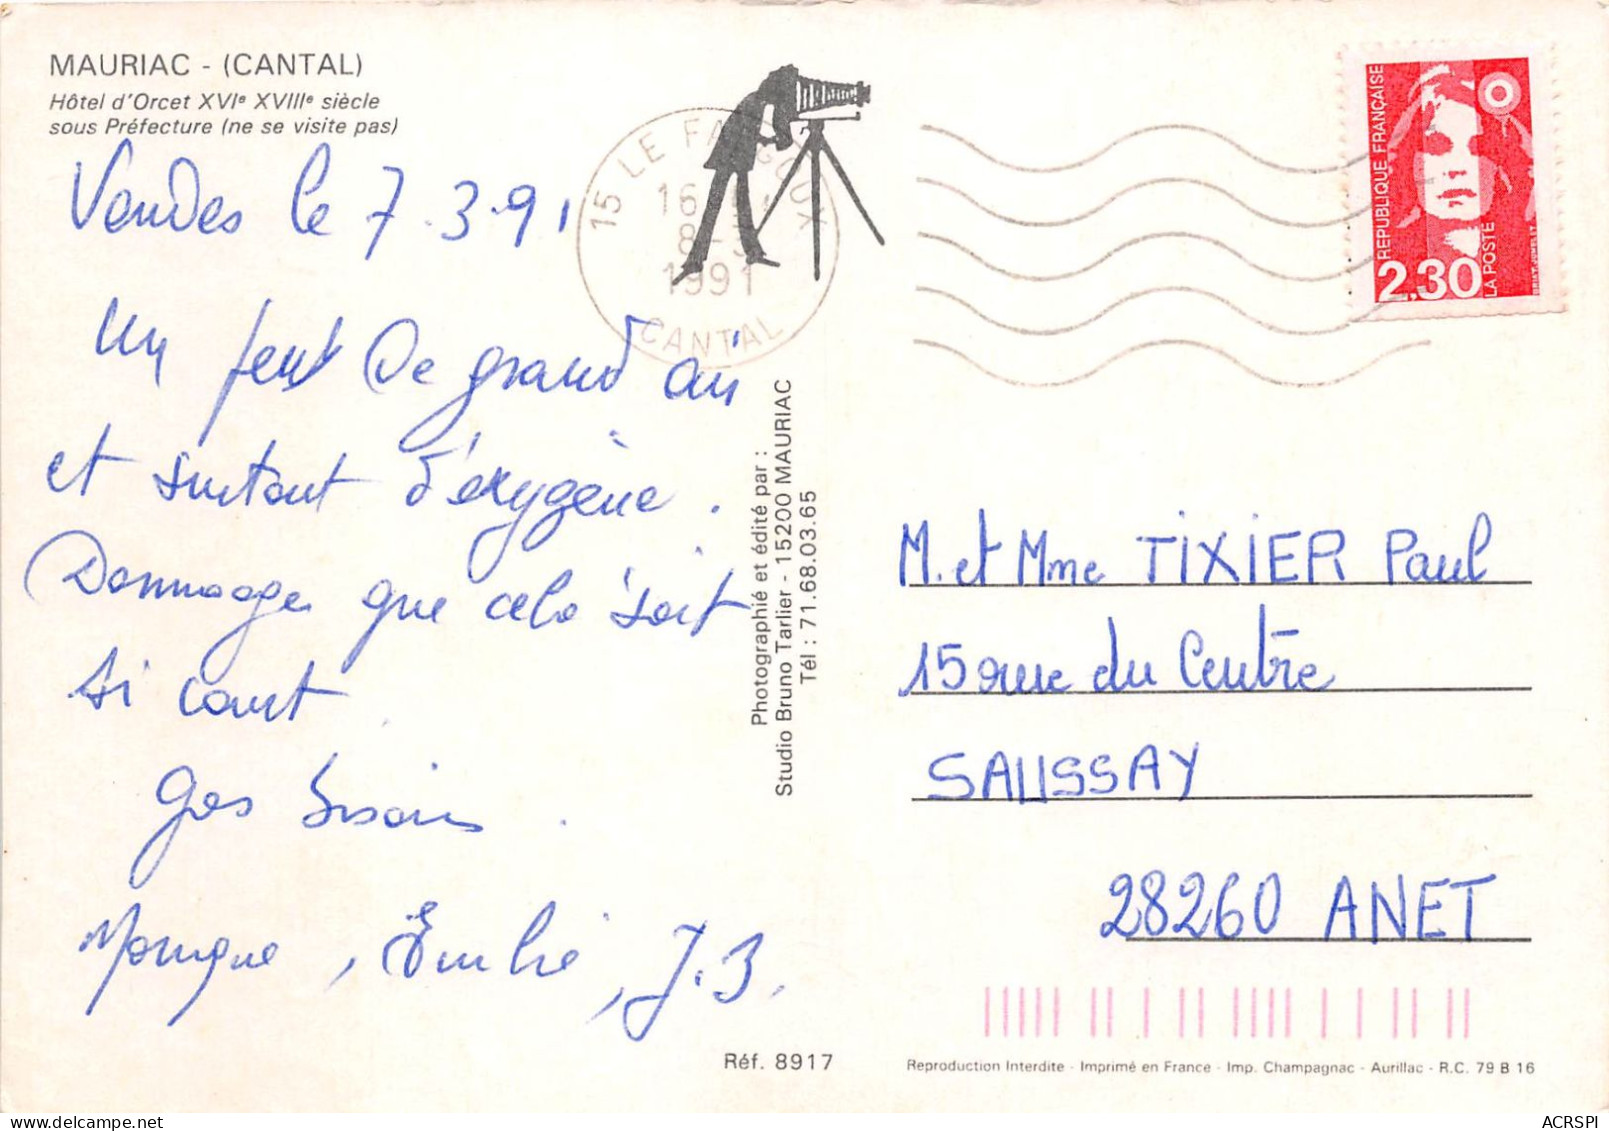 MAURIAC - (CANTAL)
Hôtel d'Orcet XVIe XVIIIe siècle
sous Préfecture (ne se visite pas)
Vendes le 7.3.91
Un peu de grand air
et surtout d'oxygène.
Dommage que cela soit
si court.
Gos bisous.
Monique, Emilie, J.B.
15 LE FALGOUX
16
8-3
1991
CANTAL
Photographié et édité par :
Studio Bruno Tarlier - 15200 MAURIAC
Tél : 71.68.03.65
Réf. 8917
REPUBLIQUE FRANÇAISE
2,30
LA POSTE
M. et Mme TIXIER Paul
15 rue du Centre
SAUSSAY
28260 ANET
Reproduction Interdite - Imprimé en France - Imp. Champagnac - Aurillac - R.C. 79 B 16
ACRSPI